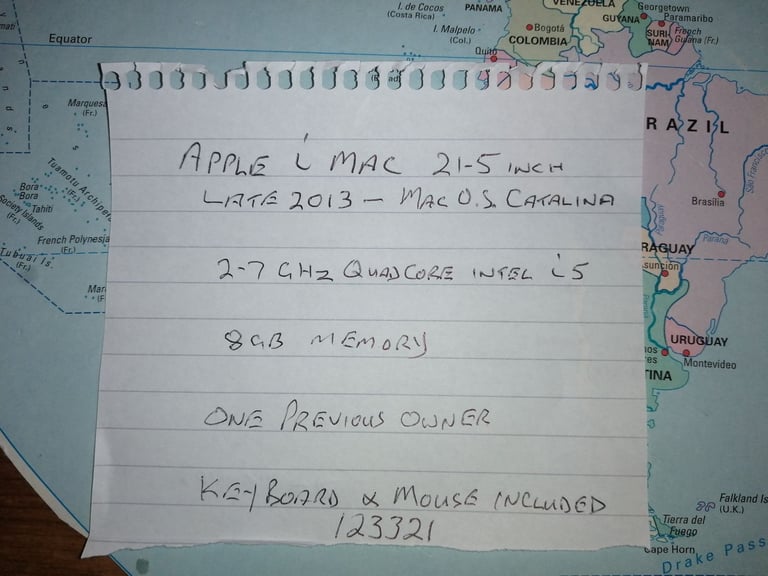 Equator
I. de Cocos
(Costa Rica)
I. Malpelo
(Col.)
PANAMA
VENEZUELA
Georgetown
GUYANA
Paramaribo
SURI-
NAM
French
Guiana (Fr.)
Bogotá
COLOMBIA
Quito
APPLE i MAC 21-5 INCH
LATE 2013 - MAC O.S. CATALINA
2-7 GHZ QUADCORE INTEL i5
8GB MEMORY
ONE PREVIOUS OWNER
KEYBOARD & MOUSE INCLUDED
123321
Marquesa
(Fr.)
Tuamotu Archipel
(Fr.)
Bora-
Bora
Tahiti
Society Islands
(Fr.)
French Polynesia
(Fr.)
Tubuai Is.
(Fr.)
Mar
(F
RAZIL
São Francisco
Brasília
Paraguay
Paraná
RAGUAY
sunción
URUGUAY
Montevideo
nos
res
TINA
Falkland Is
(U.K.)
Tierra del
Fuego
Cape Horn
Drake Pass